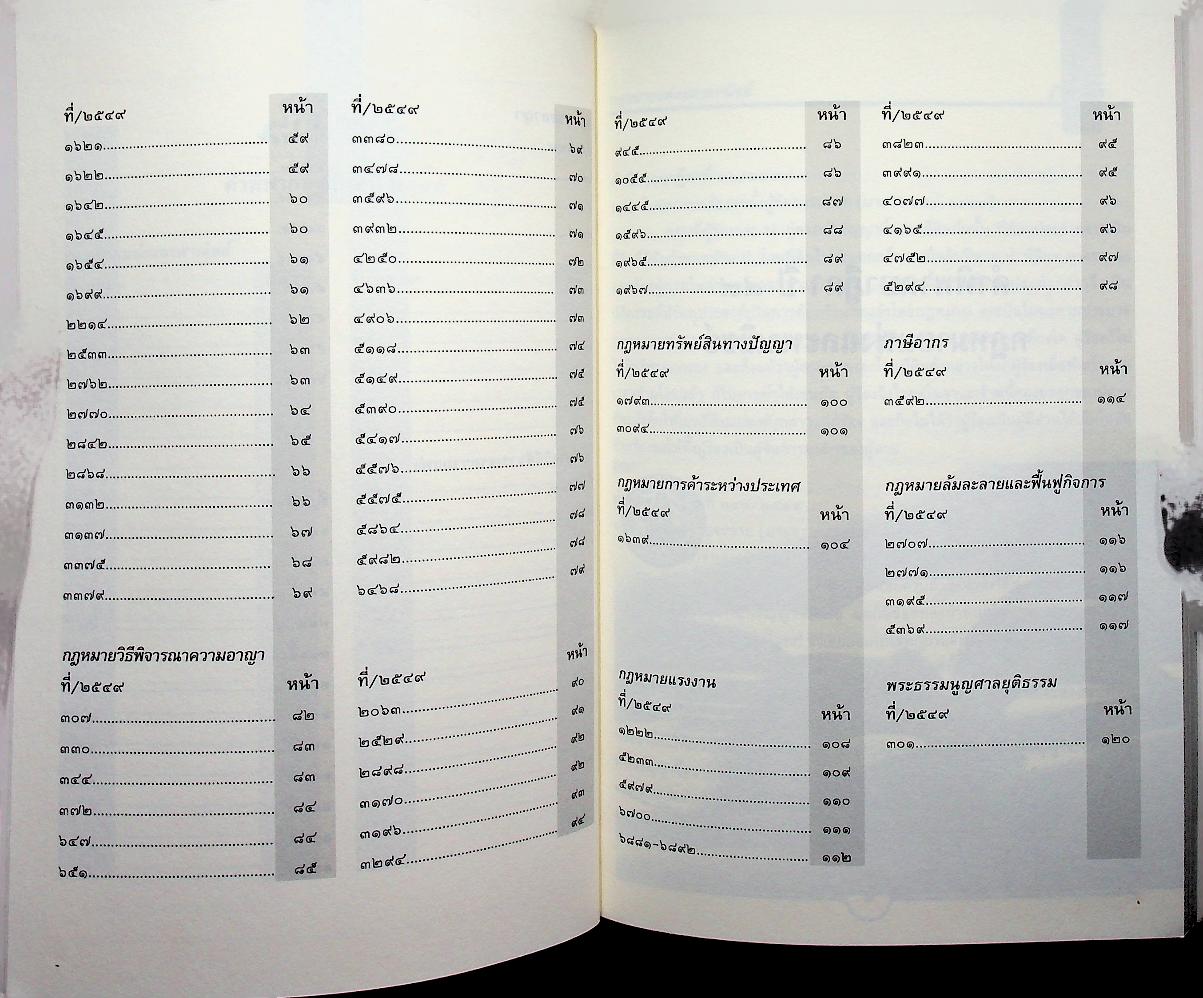 ที่/๒๕๔๙ หน้า
๑๖๒๑ ๕๙
๑๖๒๒ ๕๙
๑๖๔๒ ๖๐
๑๖๔๕ ๖๐
๑๖๕๔ ๖๑
๑๖๙๙ ๖๑
๒๒๑๔ ๖๒
๒๕๓๓ ๖๓
๒๗๖๒ ๖๓
๒๗๗๐ ๖๔
๒๘๔๒ ๖๕
๒๘๖๘ ๖๖
๓๑๓๒ ๖๖
๓๑๓๗ ๖๗
๓๓๗๕ ๖๘
๓๓๗๙ ๖๙
กฎหมายวิธีพิจารณาความอาญา
ที่/๒๕๔๙ หน้า
๓๐๗ ๘๒
๓๓๐ ๘๓
๓๔๔ ๘๓
๓๗๒ ๘๔
๖๔๗ ๘๔
๖๕๑ ๘๕
ที่/๒๕๔๙ หน้า
๓๓๘๐ ๖๙
๓๔๗๘ ๗๐
๓๕๙๖ ๗๑
๓๙๓๒ ๗๑
๔๒๕๐ ๗๒
๔๖๓๖ ๗๓
๔๙๐๖ ๗๓
๕๑๑๘ ๗๔
๕๑๔๙ ๗๕
๕๓๙๐ ๗๕
๕๔๑๗ ๗๖
๕๕๗๖ ๗๖
๕๕๗๕ ๗๗
๕๘๖๔ ๗๘
๕๙๘๒ ๗๘
๖๔๖๘ ๗๙
ที่/๒๕๔๙ หน้า
๒๐๖๓ ๙๐
๒๕๒๙ ๙๑
๒๘๙๘ ๙๒
๓๑๗๐ ๙๒
๓๑๙๖ ๙๓
๓๒๙๔ ๙๔
ที่/๒๕๔๙ หน้า
๙๔๕ ๘๖
๑๐๕๕ ๘๖
๑๔๔๕ ๘๗
๑๕๙๖ ๘๘
๑๙๖๕ ๘๙
๑๙๖๗ ๘๙
กฎหมายทรัพย์สินทางปัญญา
ที่/๒๕๔๙ หน้า
๑๗๙๓ ๑๐๐
๓๐๙๔ ๑๐๑
กฎหมายการค้าระหว่างประเทศ
ที่/๒๕๔๙ หน้า
๑๖๓๙ ๑๐๔
กฎหมายแรงงาน
ที่/๒๕๔๙ หน้า
๑๒๒๒ ๑๐๘
๕๒๓๓ ๑๐๙
๕๙๗๙ ๑๑๐
๖๗๐๐ ๑๑๑
๖๘๘๑-๖๘๙๒ ๑๑๒
ที่/๒๕๔๙ หน้า
๓๘๒๓ ๙๕
๓๙๙๑ ๙๕
๔๐๗๗ ๙๖
๔๑๖๕ ๙๖
๔๗๕๒ ๙๗
๕๒๙๔ ๙๘
ภาษีอากร
ที่/๒๕๔๙ หน้า
๓๕๙๒ ๑๑๔
กฎหมายล้มละลายและฟื้นฟูกิจการ
ที่/๒๕๔๙ หน้า
๒๗๐๗ ๑๑๖
๒๗๗๑ ๑๑๖
๓๑๙๕ ๑๑๗
๕๓๖๙ ๑๑๗
พระธรรมนูญศาลยุติธรรม
ที่/๒๕๔๙ หน้า
๓๐๑ ๑๒๐